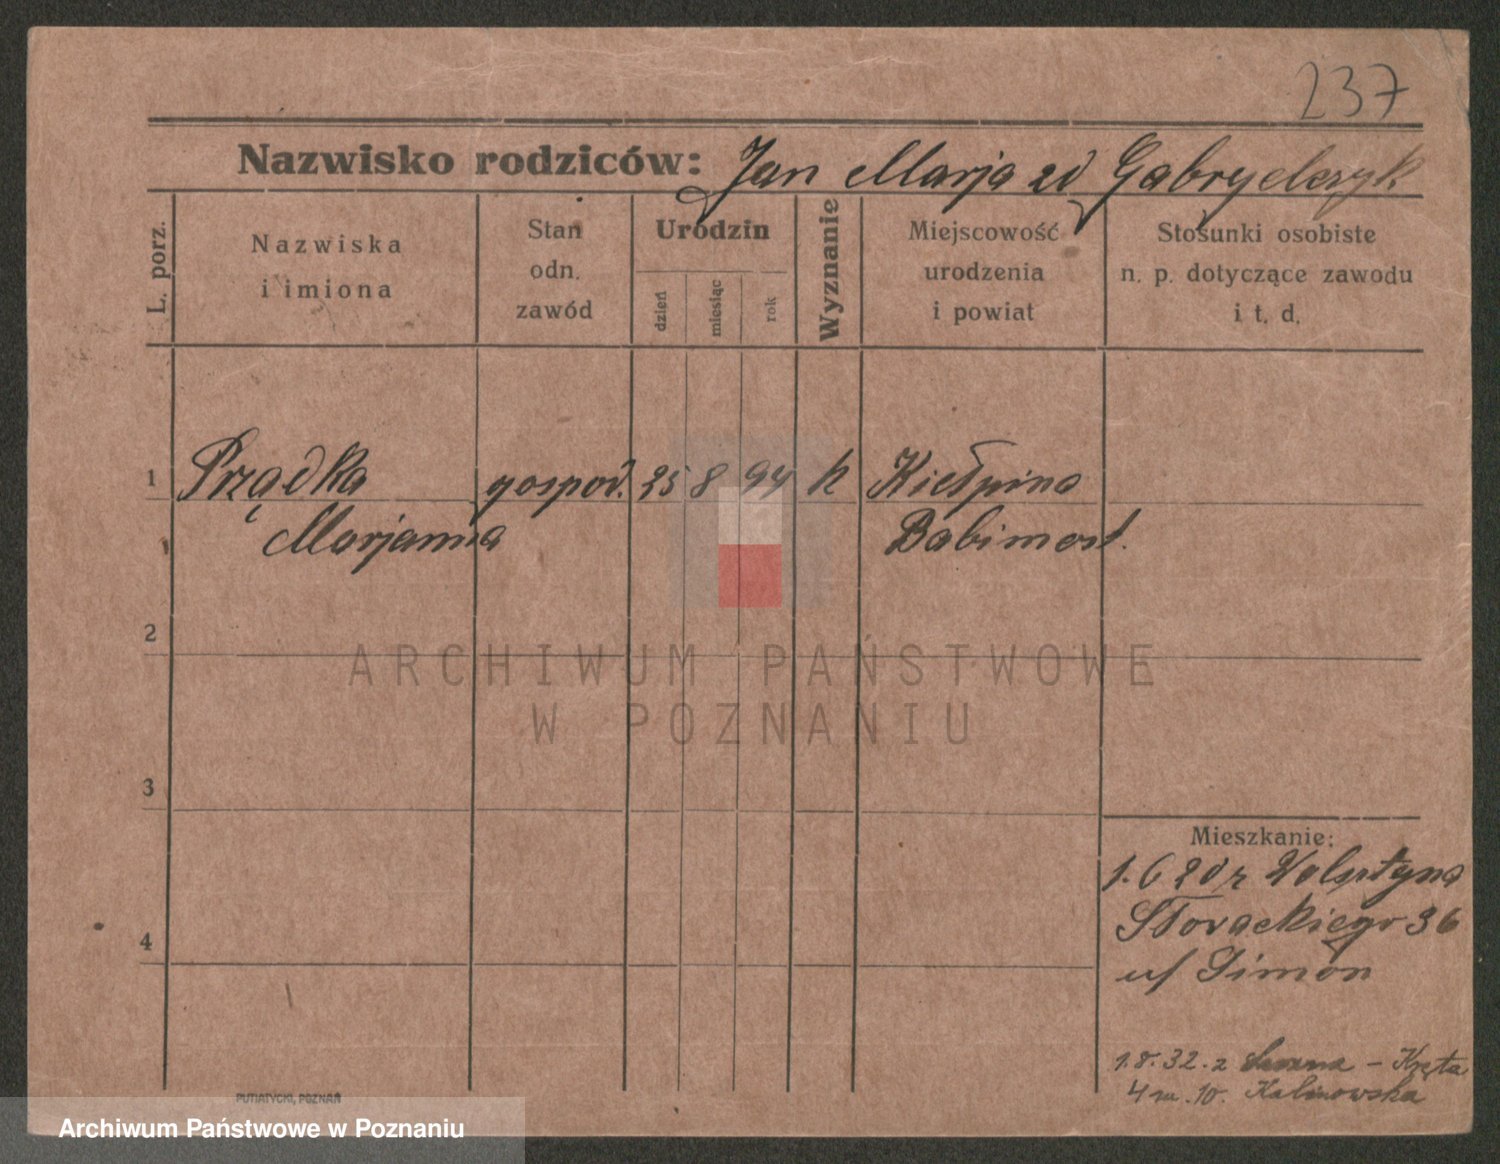 237
Nazwisko rodziców: Jan Marja zd Gabryelczyk
L. porz.
Nazwiska
i imiona
Stan
odn.
zawód
Urodzin
dzień
miesiąc
rok
Wyznanie
Miejscowość
urodzenia
i powiat
Stosunki osobiste
n. p. dotyczące zawodu
i t. d.
1 Prządka gospod. 25 8 94 k Kiełpina
Marjanna Babimost.
2
3
4
Mieszkanie:
1.6 Wolsztyna
Słowackiego 36
u/ Simon
1.8.32. z - Kręta
4 m. 10. Kalinowska
PUTIATYCKI, POZNAŃ
ARCHIWUM PAŃSTWOWE
W POZNANIU
Archiwum Państwowe w Poznaniu